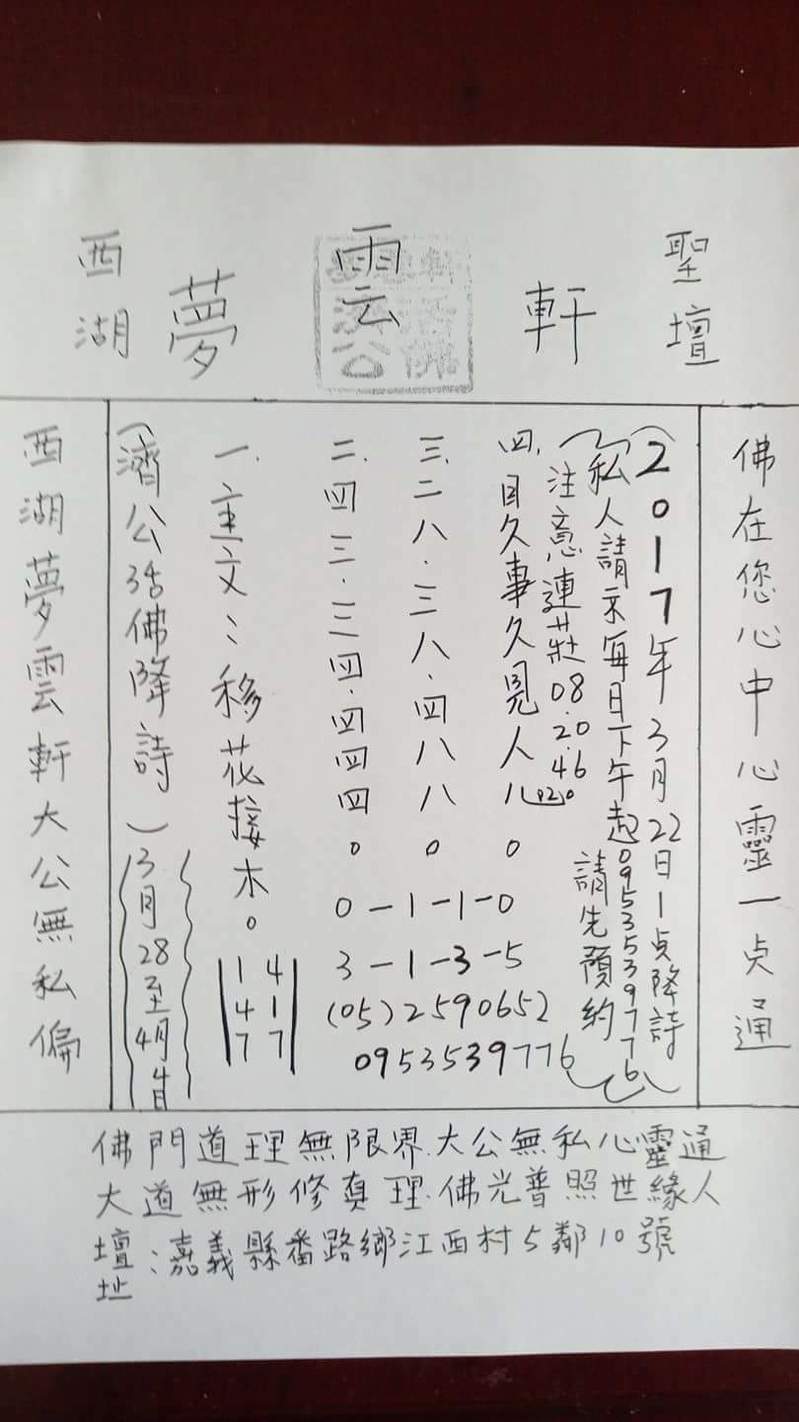 西湖
夢
雲
軒
聖壇
西湖夢雲軒大公無私偏
(濟公活佛降詩)
3月28至4月4日
一.主文:移花接木。
14
41
77
二.四三.三四.四四四。
三.二八.三八.四八八。
四.目久事久見人心。
0-1-1-0
3-1-3-5
(05)2590652
0953539776
注意連莊08.20.46
(私人請示每日下午起0953539776
請先預約)
(2017年3月22日1点降詩)
佛在您心中心靈一点通
佛門道理無限界.大公無私心靈通
大道無形修真理.佛光普照世緣人
壇址:嘉義縣番路鄉江西村5鄰10號